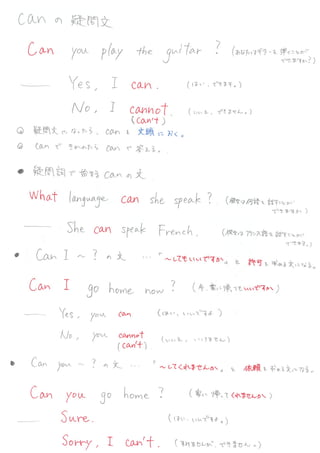 canの疑問文
Can you play the guitar? (あなたはギターを弾くことができますか?)
Yes, I can. (はい、できます。)
No, I cannot. (いいえ、できません。)
(can't)
疑問文になったら、canを文頭におく。
canできかれたらcanで答える。
● 疑問詞で始まるcanの文.
What language can she speak? (彼女は何語を話すことができますか)
She can speak French. (彼女はフランス語を話すことができます。)
● Can I ~ ? の文 … 「~してもいいですか」と許可を求める文になる。
Can I go home now? (今、家に帰ってもいいですか)
Yes, you can (はい、いいですよ)
No, you cannot (いいえ、いけません)
(can't)
● Can you ~ ? の文 … 「~してくれませんか」と依頼を求める文になる。
Can you go home? (家に帰ってくれませんか)
Sure. (はい、いいですよ。)
Sorry, I can't. (すみませんが、できません。)